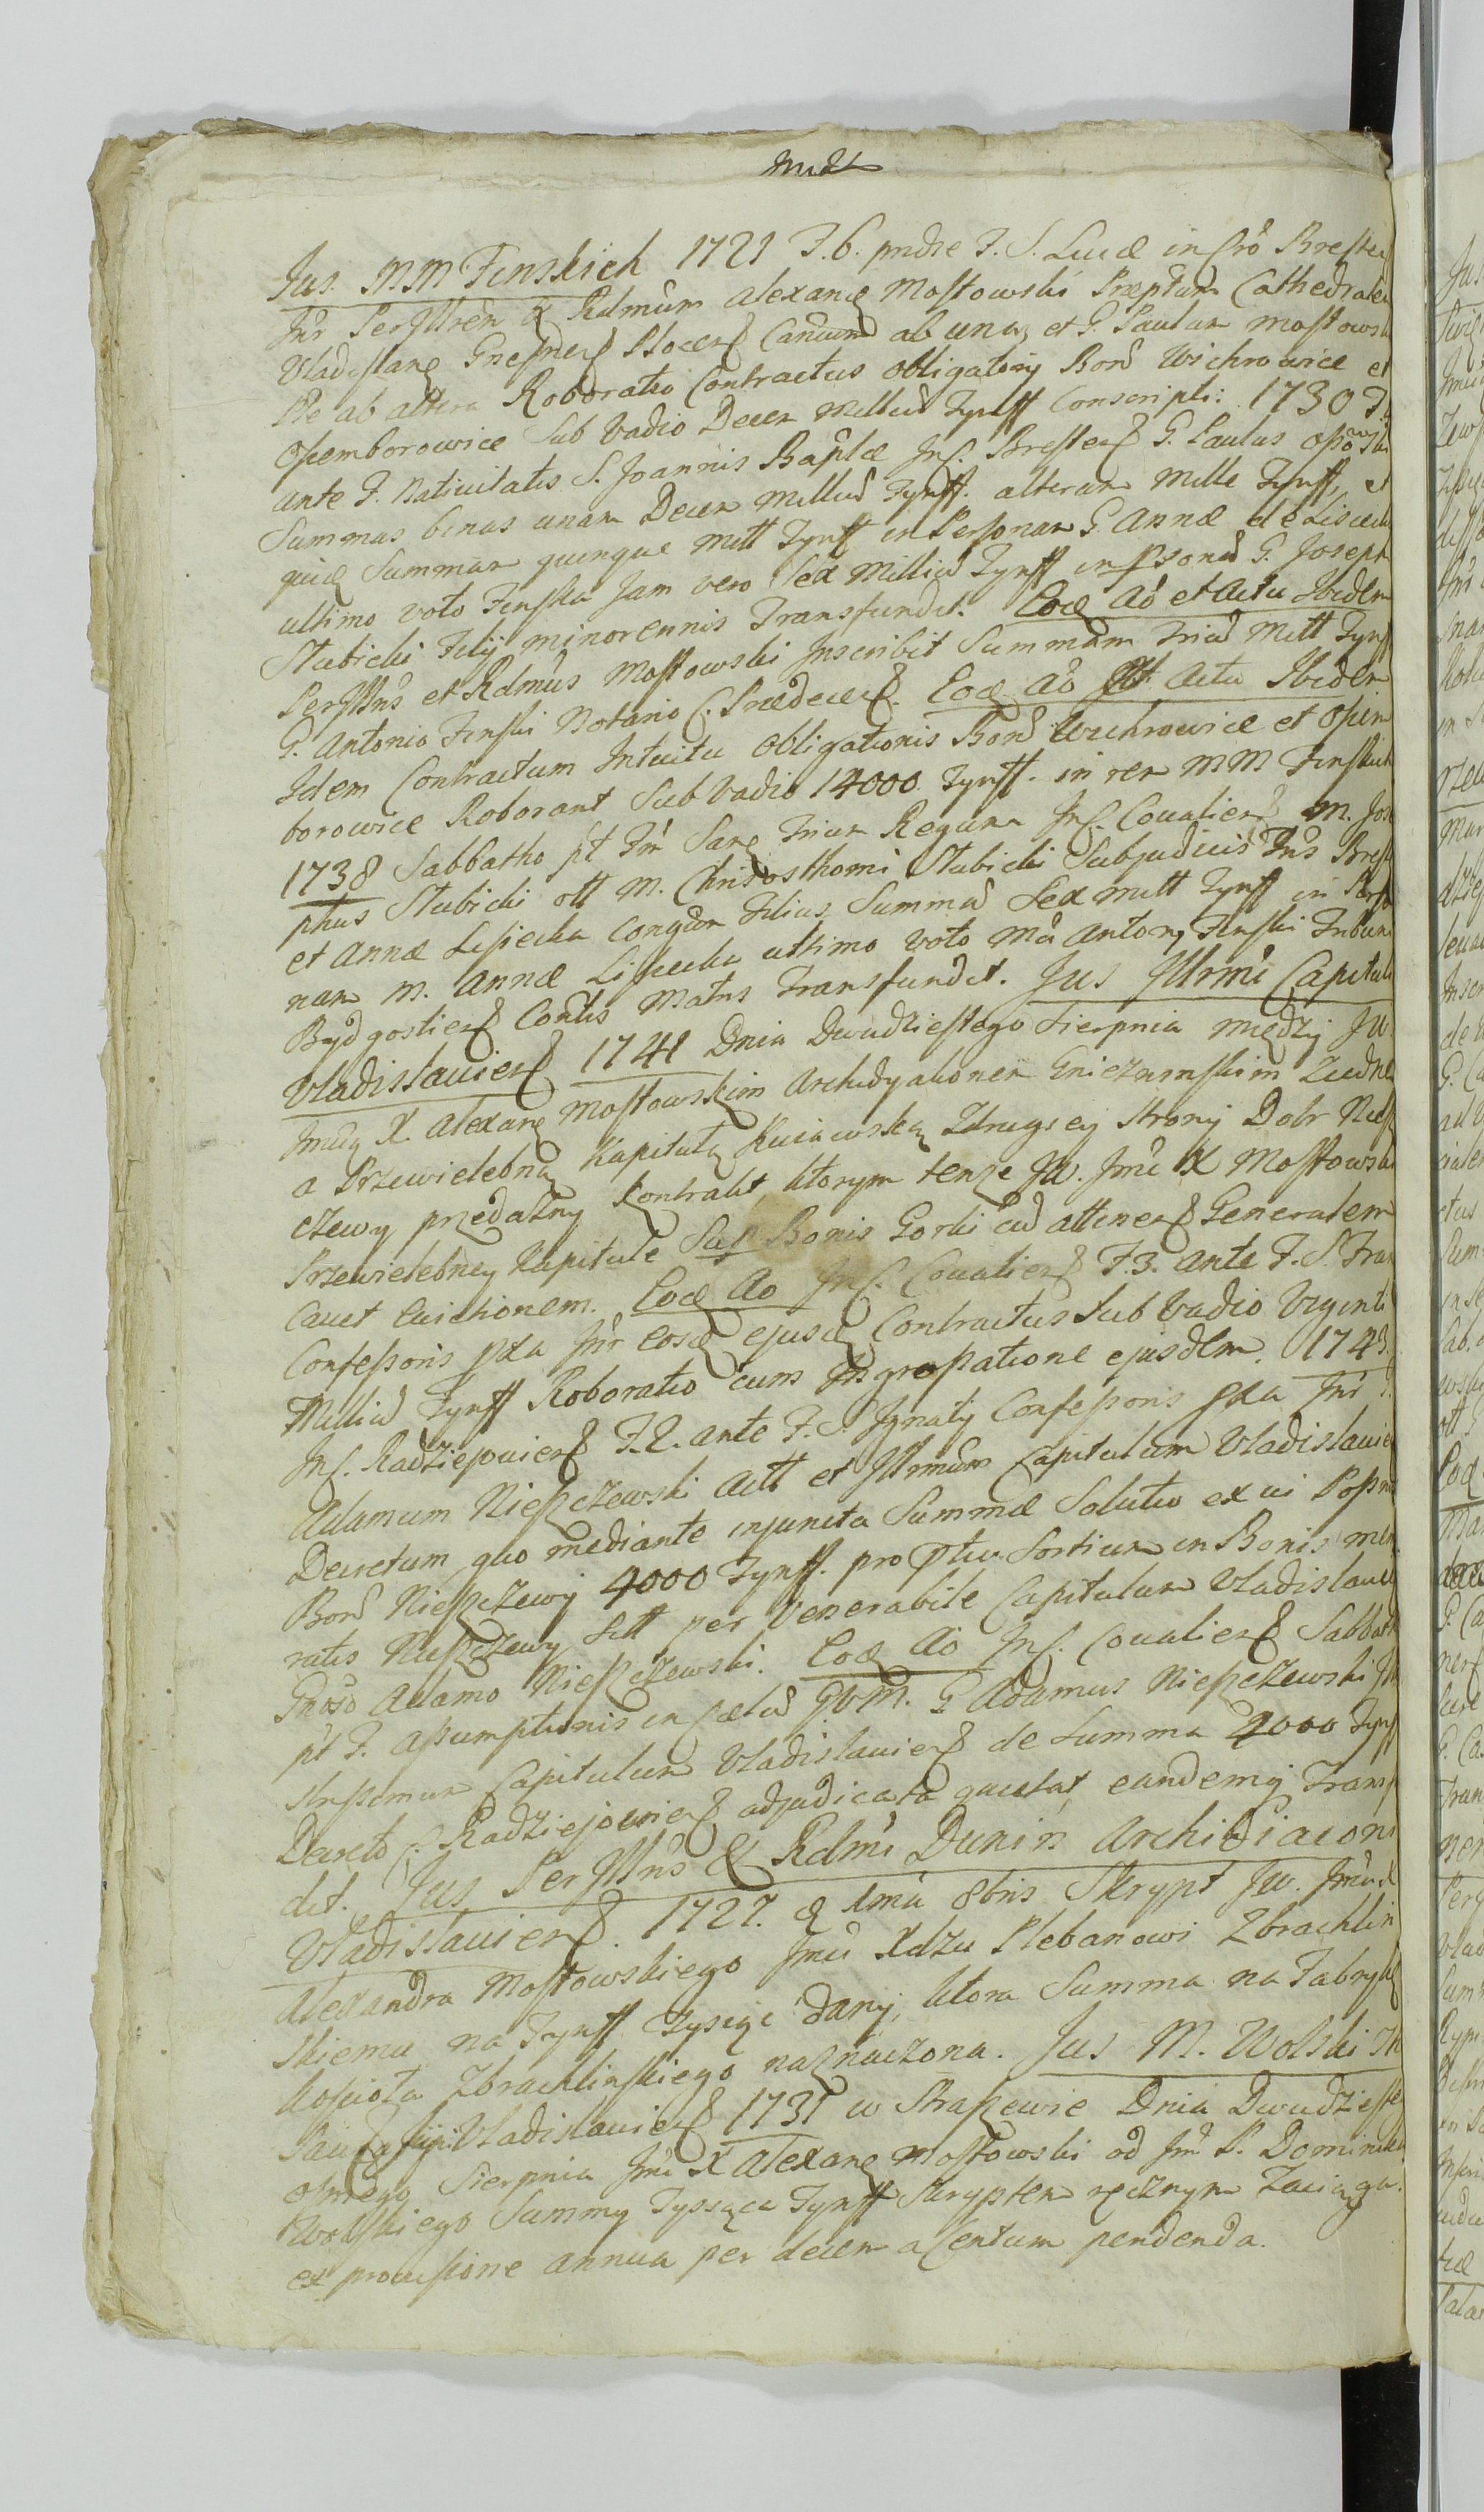 Jus MM Finskich 1721 F. 6. pridie F. S. Lucæ in Cro Bresten
Inr Perjllren & Rdmum Alexandr Mostowski Præptum Cathedralem
Vladislau Gnesnen Plocen Canum ab una, et G. Paulum Mostowski
Ple ab altera Roboratio Contractus Obligatorij Bonr Wichrowice et
Osemborowice Sub Vadio Decem Milliu Tynff Conscripti: 1730 F.
ante F. Nativitatis S. Joannis Baplæ In C. Bresten G. Paulus
Summas binas unam Decem Milliu Tynff. alteram Mille Tynff, et
quinque Mill Tynff in Personam G. Annæ de
ultimo voto Finska Jam vero Sex Milliu Tynff in psona G. Joseph
Stubicki Filij minorennis Transfundit. Eod Ao et Actu Ibidem
Perjllris et Rdmus Mostowski Inscribit Summam Triu Mill Tynff
G. Antonio Finski Notario C. Eod Ao et Actu Ibidem
Idem Contractum Intuitu Obligationis Bonr Wichrowice et Osem
borowice Roborant Sub Vadio 14000 Tynff. in rem MM Finskich
1738 Sabbatho pt Fm Sanc Trium Regum In C. Covalien M. Jose
phus Stubicki olt M. Chrisosthomi Stubicki Subjudicis Tris Brest
et Annæ Lisiecka Congum Filius Summa Sex Mill Tynff in Perso
nam M. Annæ Lisiecka ultimo voto Mci Antonij Finski Tribuni
Bydgostien Contis Matris Transfundit. Jus Jllrmi Capituli
Vladislavien 1741 Dnia Dwudziestego Sierpnia między JW.
Jmcią X. Alexand Mostowskim Archidyakonem Gnieznienskim Zjedney
a Przewielebną Kapitułą Kuiawską Zdrugiey Strony Dobr Niesz
czewy przedażny Kontrakt, ktorym tenże JW. Jmć X Mostowski
Przewielebney Kapitule Sup Bonis Gorki cu attinen Generalem
Cavet Evictionem. Eod Ao In C. Covalien F. 3. ante F. S. Fran
Confessoris pxa Inr eosd ejusd Contractus Sub Vadio Viginti
Milliu Tynff Roboratio cum Ingrossatione ejusdem. 1743.
In C. Radziejovien F. 2. ante F. S. Ignatij Confessoris pxa Inr G.
Adamum Nieszczewski Act et Jllrmum Capitulum Vladislavien
Decretum quo mediante injuncta Summæ Solutio ex vi Possns
Bonr Nieszczewy 4000 Tynff. pro ptu Sortium in Bonis memo
ratis Nieszczewy Stt per Venerabile Capitulum Vladislavien
Gnoso Adamo Nieszczewski. Eod Ao In C. Covalien Sabbatho
pt F. Assumptionis in Cælu BVM. G Adamus Nieszczewski Ill
strissimum Capitulum Vladislavien de Summa 4000 Tynff
Decreto C. Radziejovien adjudicata quietat eandemq Transfun
dit. Jus Perjllris & Rdmi Dunin Archidiaconi
Vladislavien. 1727. d 1ma 8bris Skrypt JW. Jmci X
Alexandra Mostowskiego Jmci Xdzu Plebanowi Zbrachlin
skiemu na Tynff Tysiąc dany, ktora Summa na Fabrykę
Kosciola Zbrachlinskiego naznaczona. Jus M. Wolski Th
Vladislavien 1731 w Straszewie Dnia Dwudziestego
osmego Sierpnia Jmć X Alexand Mostowski od Jm P. Dominika
Wolskiego Summy Tysiąca Tynff Skryptem ręcznym Zaciąga.
ex provisione annua per decem a Centum pendenda.